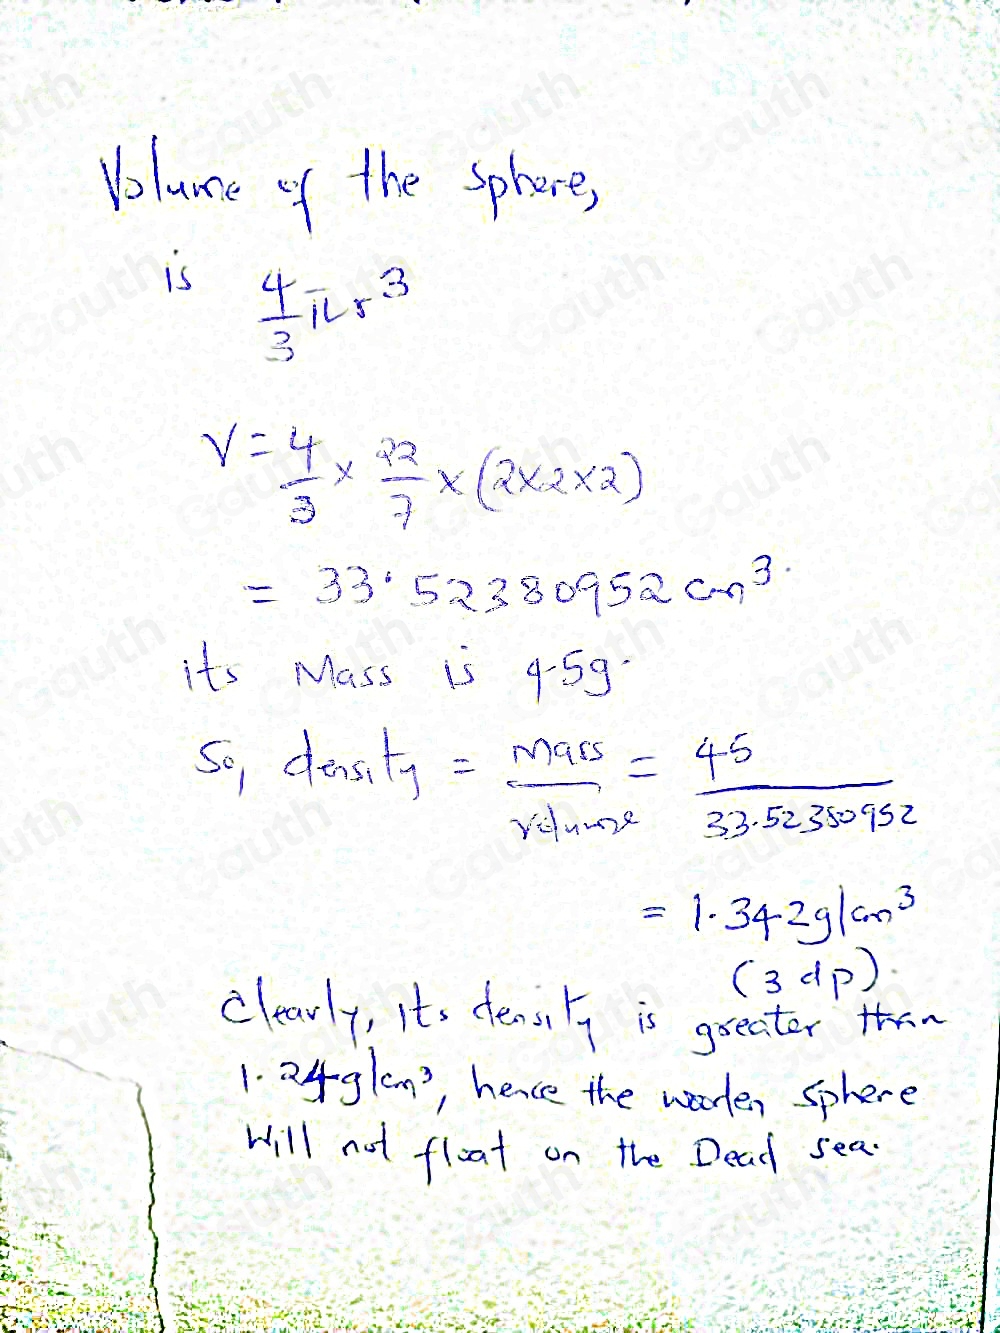 Volume of the sphere,
is 4/3 πr³
V = 4/3 × 22/7 × (2×2×2)
= 33.52380952 cm³.
its Mass is 45g.
So, density = Mass/Volume = 45/33.52380952
= 1.342g/cm³
(3 dp).
Clearly, its density is greater than
1.24g/cm³, hence the wooden sphere
Will not float on the Dead sea.